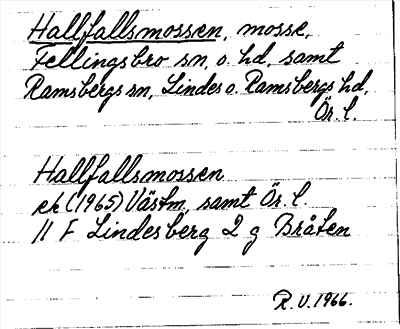 Hallfallsmossen, mosse,
Fellingsbro sn, o. hd, samt
Ramsbergs sn, Lindes o. Ramsbergs hd,
Ör. l.
Hallfallsmossen
ek (1965) Västm, samt Ör. l.
11 F Lindesberg 2 g Bråten
R. V. 1966.